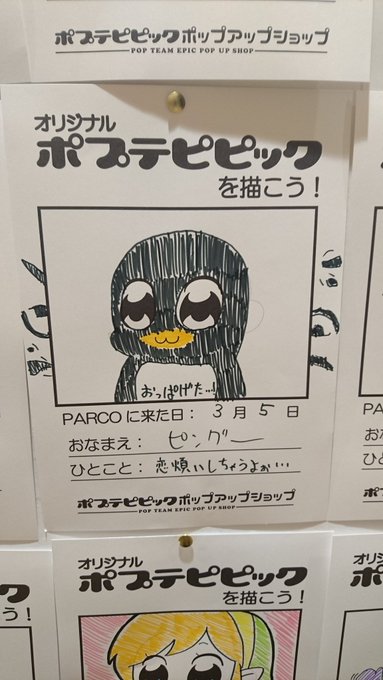 ポプテピピックポップアップショップ
POP TEAM EPIC POP UP SHOP
オリジナル
ポプテピピック
を描こう!
おっぱげた…!
PARCOに来た日: 3月5日
おなまえ: ピングー
ひとこと: 恋煩いしちゃうよぉ…
ポプテピピックポップアップショップ
POP TEAM EPIC POP UP SHOP
オリジナル
ポプテピピック
を描こう!